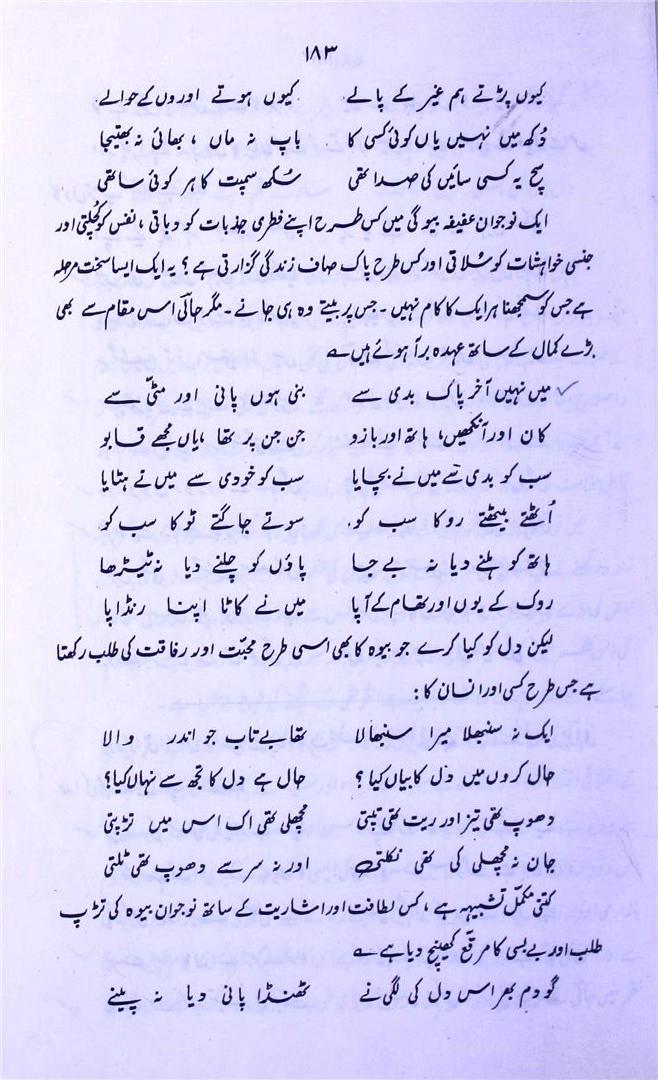 ۱۸۳
کیوں پڑتے ہم غیر کے پالے کیوں ہوتے اوروں کے حوالے
دُکھ میں نہیں یاں کوئی کسی کا باپ نہ ماں ، بھائی نہ بھتیجا
سچ یہ کسی سائیں کی صدا تھی سُکھ سمپت کا ہر کوئی ساتھی
ایک نوجوان عفیفہ بیوگی میں کس طرح اپنے فطری جذبات کو دباتی ، نفس کو کچلتی اور
جنسی خواہشات کو سُلاتی اور کس طرح پاک صاف زندگی گزارتی ہے ؟ یہ ایک ایسا سخت مرحلہ
ہے جس کو سمجھنا ہر ایک کا کام نہیں ۔ جس پر بیتے وہ ہی جانے ۔ مگر حالؔی اس مقام سے بھی
بڑے کمال کے ساتھ عہدہ برآ ہوئے ہیں ؎
میں نہیں آخر پاک بدی سے بنی ہوں پانی اور مٹّی سے
کان اور آنکھیں، ہاتھ اور بازو جن جن پر تھا یاں مجھے قابو
سب کو بدی سے میں نے بچایا سب کو خودی سے میں نے ہٹایا
اُٹھتے بیٹھتے روکا سب کو سوتے جاگتے ٹوکا سب کو
ہاتھ کو ہلنے دیا نہ بے جا پاؤں کو چلنے دیا نہ ٹیڑھا
روک کے یوں اور تھام کے آپا میں نے کاٹا اپنا رنڈاپا
لیکن دل کو کیا کرے جو بیوہ کا بھی اسی طرح محبّت اور رفاقت کی طلب رکھتا
ہے جس طرح کسی اور انسان کا :
ایک نہ سنبھلا میرا سنبھالا تھا بے تاب جو اندر والا
حال کروں میں دل کا بیاں کیا ؟ حال ہے دل کا تجھ سے نہاں کیا؟
دھوپ تھی تیز اور ریت تھی تپتی مچھلی تھی اک اس میں تڑپتی
جان نہ مچھلی کی تھی نکلتی اور نہ سر سے دھوپ تھی ٹلتی
کتنی مکمّل تشبیہہ ہے ، کس لطافت اور اشاریت کے ساتھ نوجوان بیوہ کی تڑپ
طلب اور بے بسی کا مرقع کھینچ دیا ہے ؎
گو دم بھر اس دل کی لگی نے ٹھنڈا پانی دیا نہ پینے